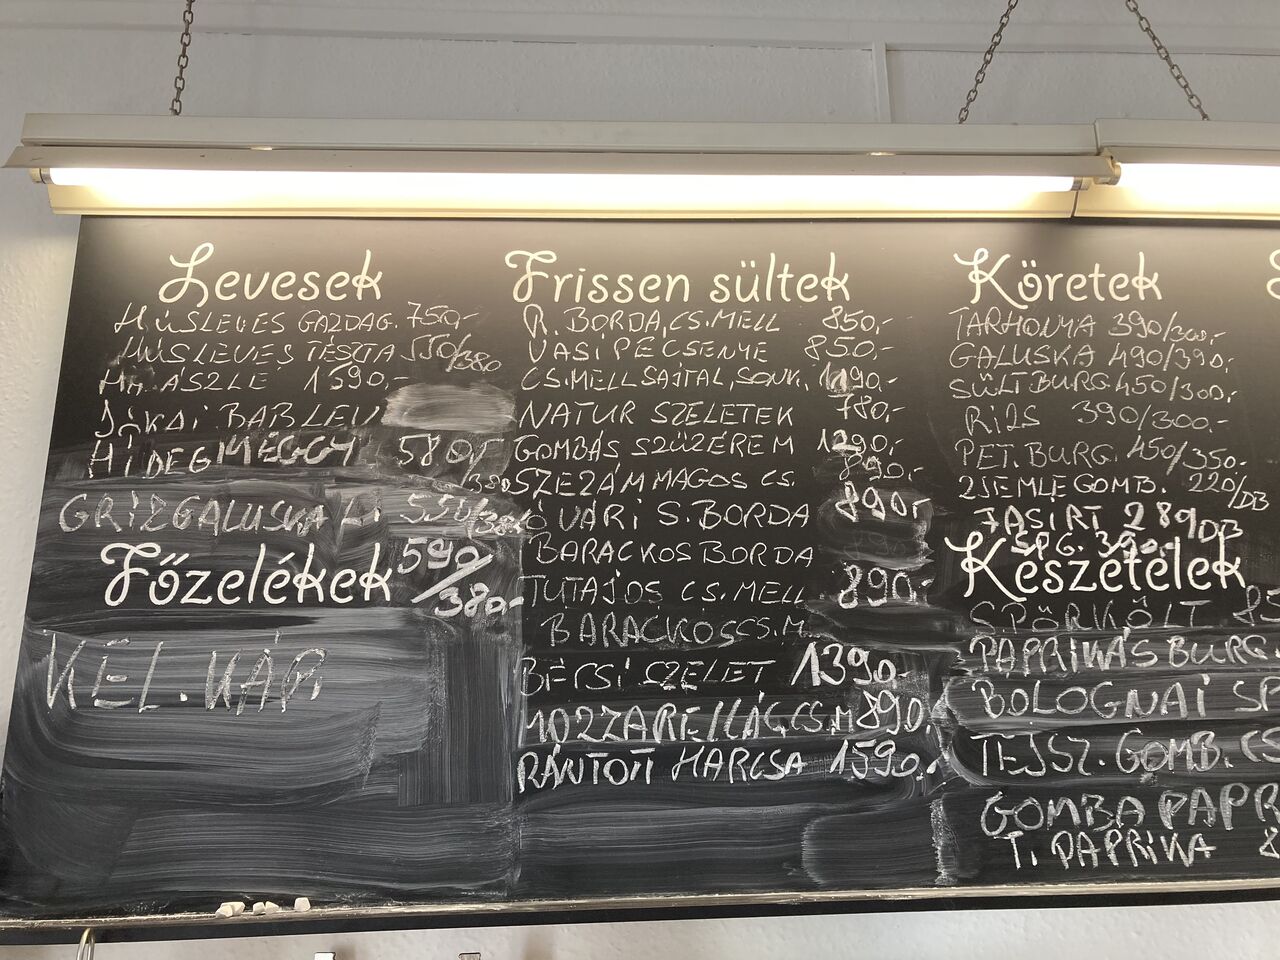 Levesek
HÚSLEVES GAZDAG. 750,-
HÚSLEVES TÉSZTA 550/380
HALÁSZLÉ 1590,-
JÓKAI BABLEV
HIDEG MEGGY 580,-
/380
GRÍZGALUSKA L. 550/380
Főzelékek 590/380,-
KEL. KÁP.
Frissen sültek
R. BORDA, CS. MELL 850,-
VASI PECSENYE 850,-
CS. MELL SAJTAL, SONK. 1190,-
NATUR SZELETEK 780,-
GOMBÁS SZŰZÉREM 1290,-
SZEZÁMMAGOS CS. 890,-
ÓVÁRI S. BORDA 890,-
BARACKOS BORDA
TUTAJOS CS. MELL 890,-
BARACKOS CS. M.
BÉCSI SZELET 1390,-
MOZZARELLÁS CS. M 890,-
RÁNTOTT HARCSA 1590,-
Köretek
TARHONYA 390/300,-
GALUSKA 490/390,-
SÜLT BURG. 450/300,-
RIZS 390/300.-
PET. BURG. 450/350.-
ZSEMLEGOMB. 220/DB
FASÍRT 289/DB
SPG. 390,-
Készételek
SPÖRKÖLT 85
PAPRIKÁS BURG.
BOLOGNAI SP
TEJSZ. GOMB. CS
GOMBA PAPR
T. PAPRIKA 8